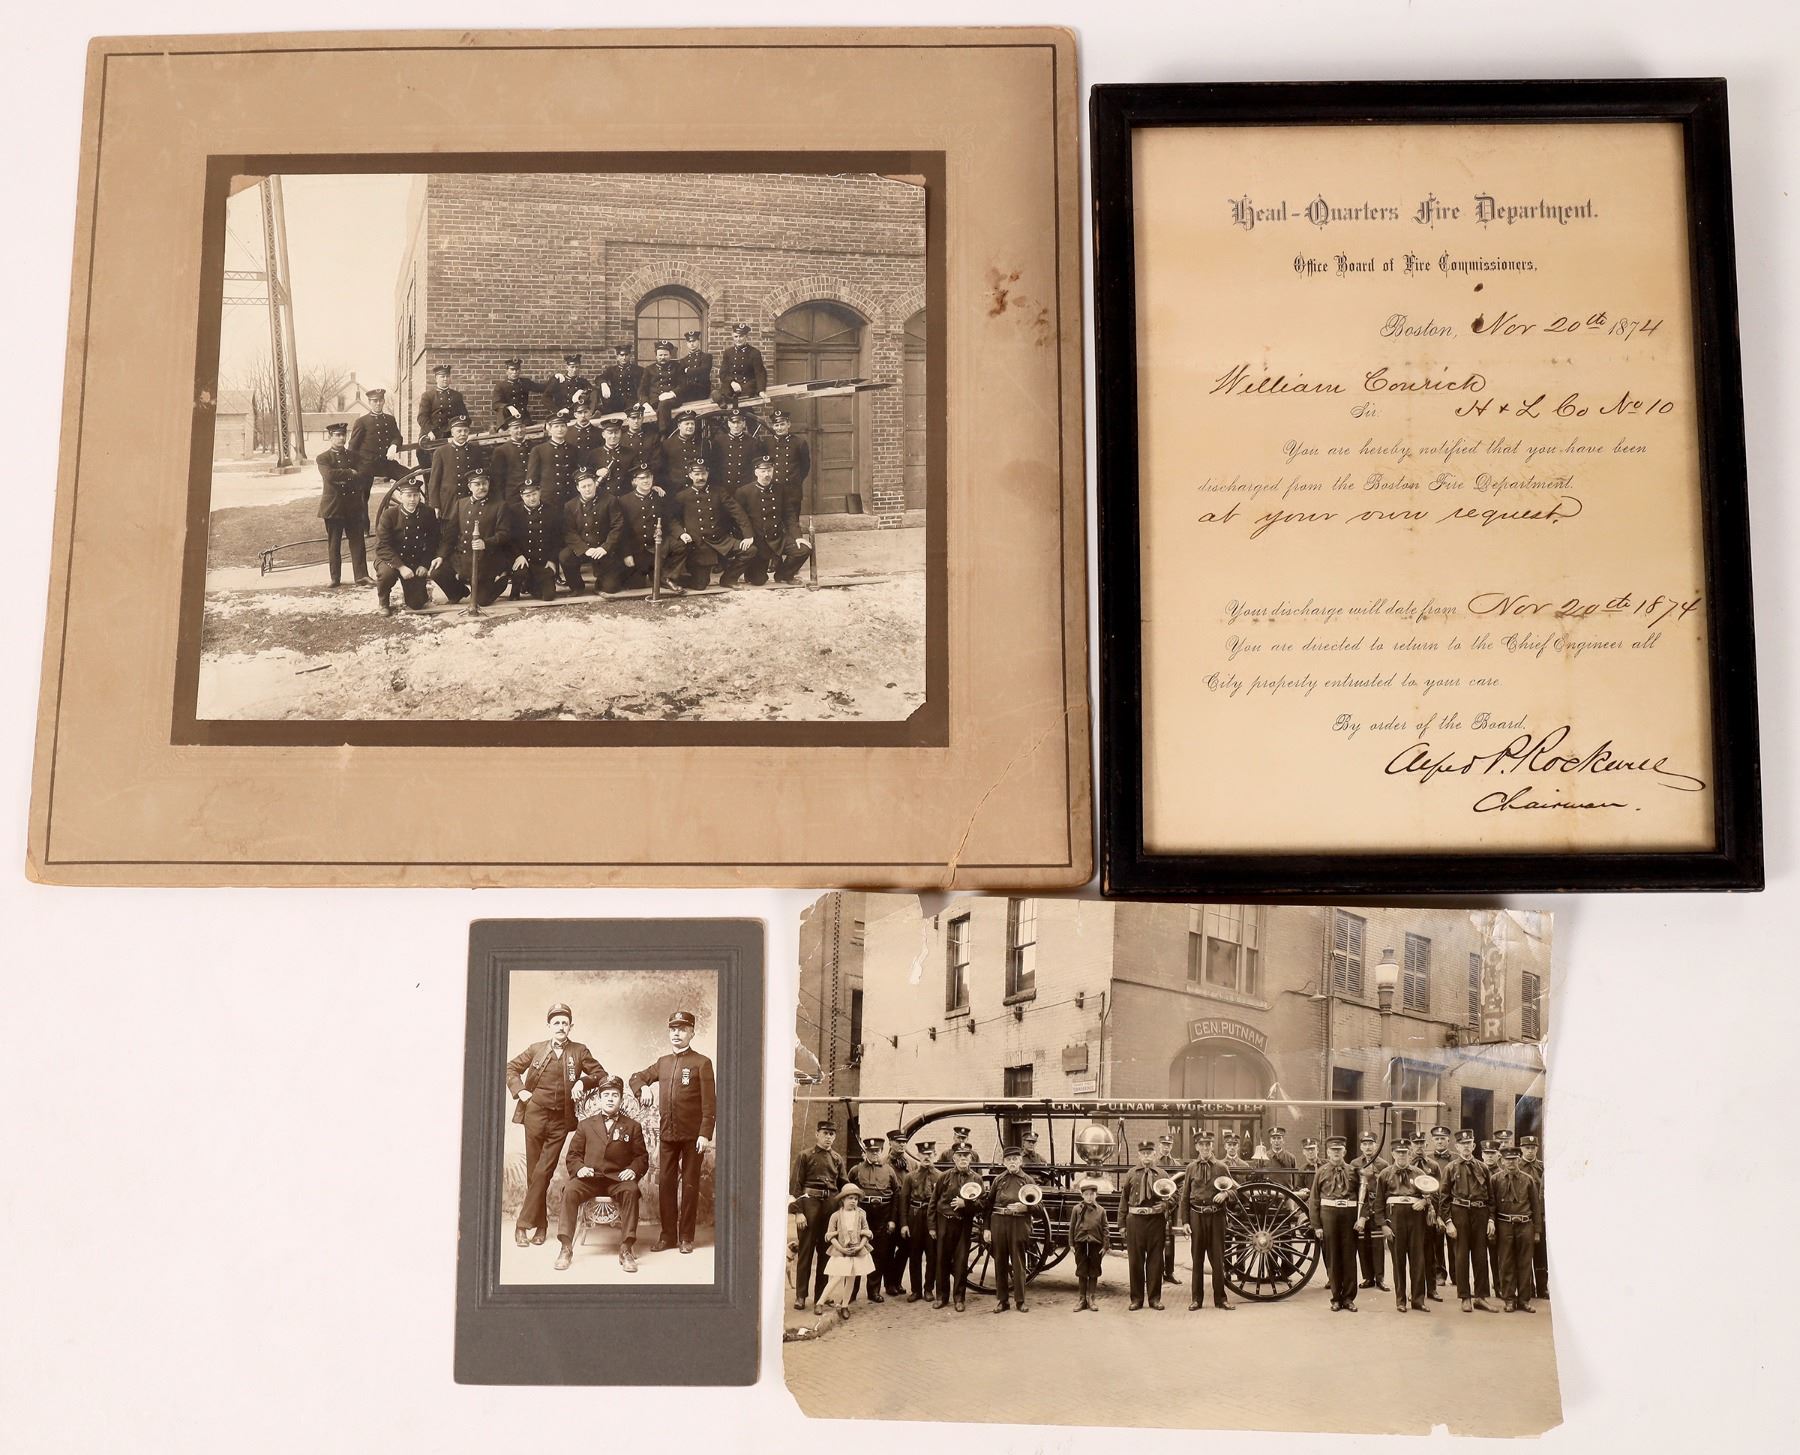 Head-Quarters Fire Department.
Office Board of Fire Commissioners,
Boston, Nov 20th 1874
William Conrick
Sir: H & L Co No 10
You are hereby notified that you have been
discharged from the Boston Fire Department.
at your own request.
Your discharge will date from Nov 20th 1874
You are directed to return to the Chief Engineer all
City property entrusted to your care.
By order of the Board.
Alfred P. Rockwell
Chairman.
GEN. PUTNAM
GEN. PUTNAM ★ WORCESTER